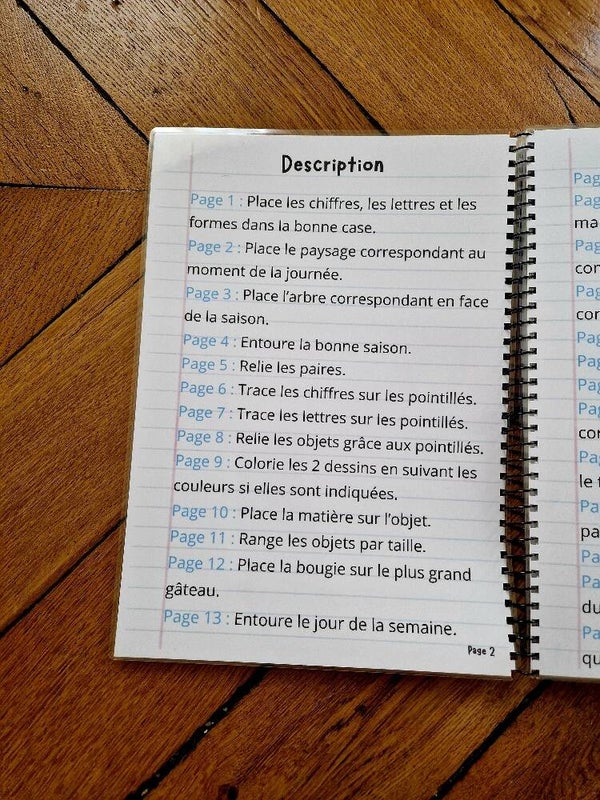 Description
Page 1 : Place les chiffres, les lettres et les
formes dans la bonne case.
Page 2 : Place le paysage correspondant au
moment de la journée.
Page 3 : Place l'arbre correspondant en face
de la saison.
Page 4 : Entoure la bonne saison.
Page 5 : Relie les paires.
Page 6 : Trace les chiffres sur les pointillés.
Page 7 : Trace les lettres sur les pointillés.
Page 8 : Relie les objets grâce aux pointillés.
Page 9 : Colorie les 2 dessins en suivant les
couleurs si elles sont indiquées.
Page 10 : Place la matière sur l'objet.
Page 11 : Range les objets par taille.
Page 12 : Place la bougie sur le plus grand
gâteau.
Page 13 : Entoure le jour de la semaine.
Page 2